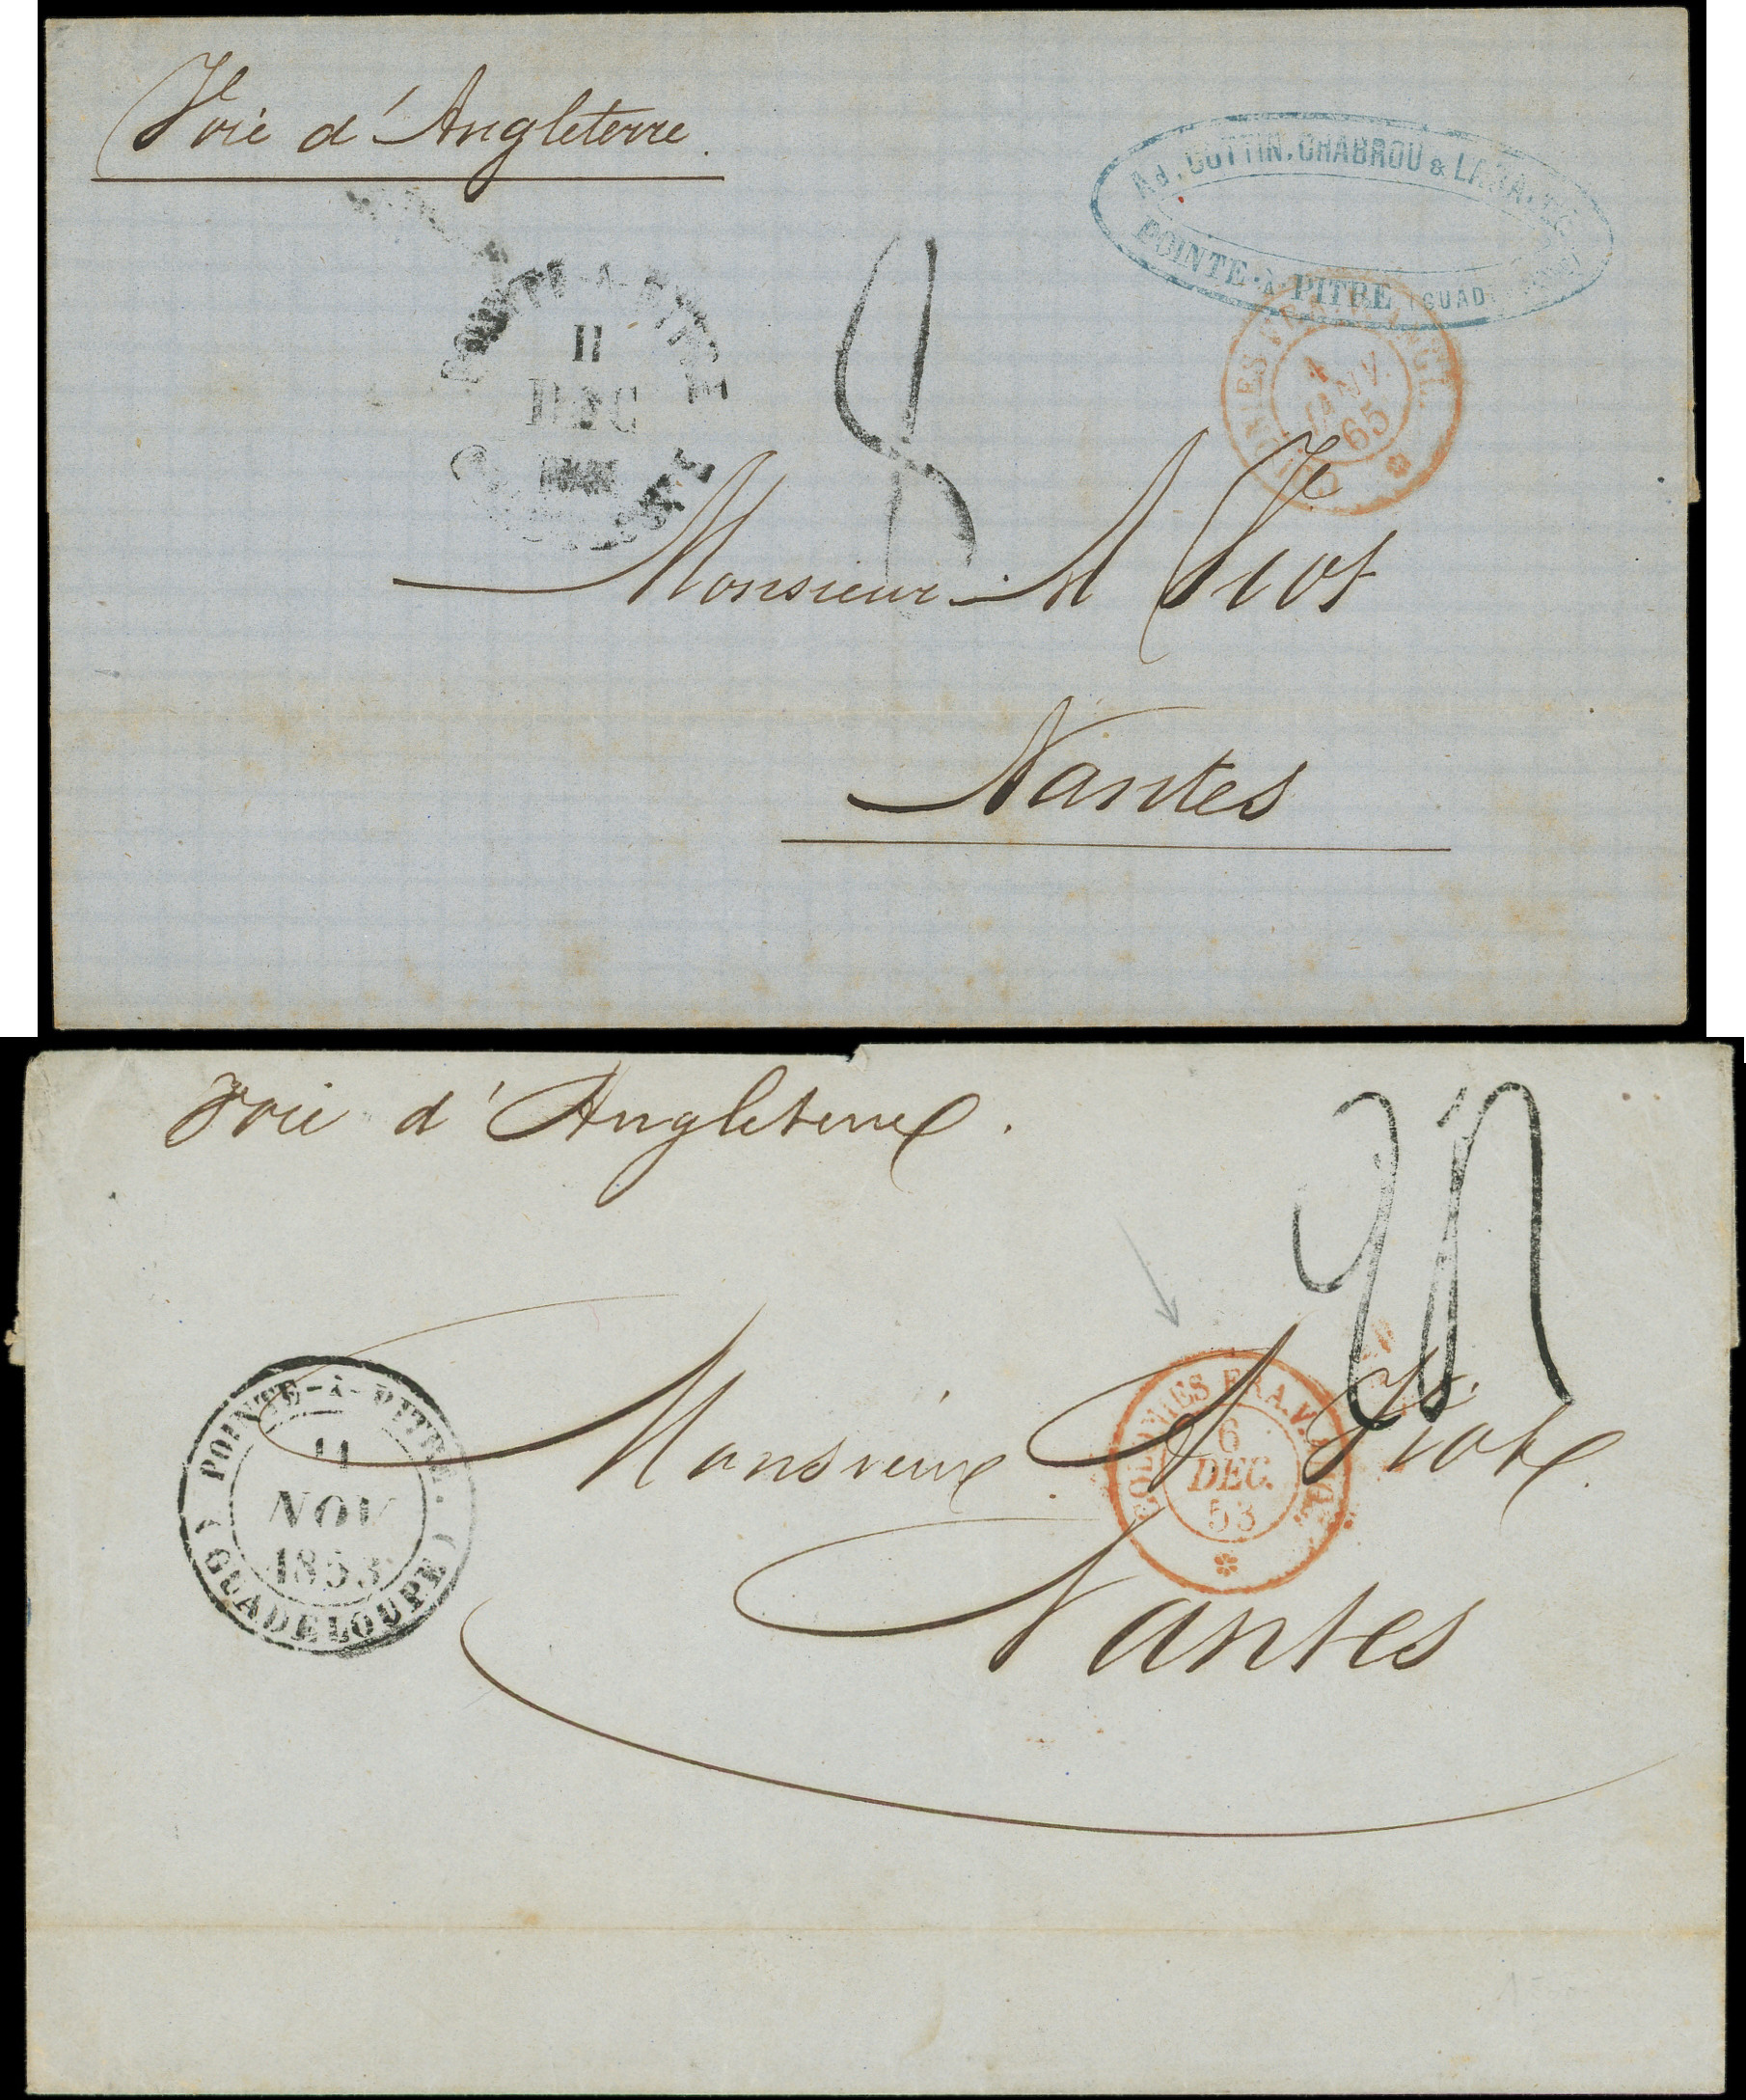 Voie d'Angleterre.
Ad. COTTIN, CHABROU &
POINTE-À-PITRE (GUAD
POINTE-À-PITRE
11
DEC
8
4
JANV.
65
Monsieur A Viot
Nantes
Voie d'Angleterre.
POINTE-À-PITRE.
11
NOV
1853
(GUADELOUPE)
COLONIES FRA. V. ANGL.
6
DEC.
53
Monsieur A Viot
Nantes